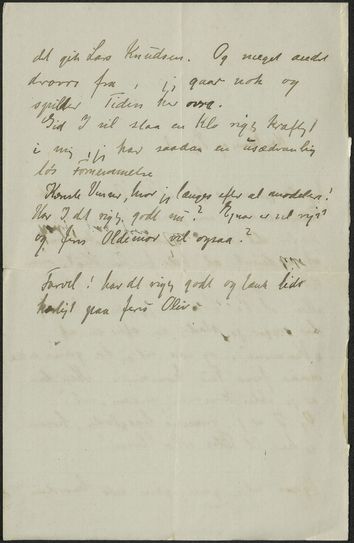 det gik Lars Knudsen. Og meget andet
drovrs fra, jeg gaar nok og
spilder Tiden her ovre.
Gid I vil slaa en Klo rigtig kraftigt
i mig, jeg har saadan en usædvanlig
løs Fornemmelse
Kæreste Venner, hvor jeg længes efter at modellere!
Har I det rigtig godt nu? er vel rigtig
og Jeres Oldemor vel ogsaa?
Farvel! har det rigtig godt og tænk lidt
kærligt paa Jeres Oliv